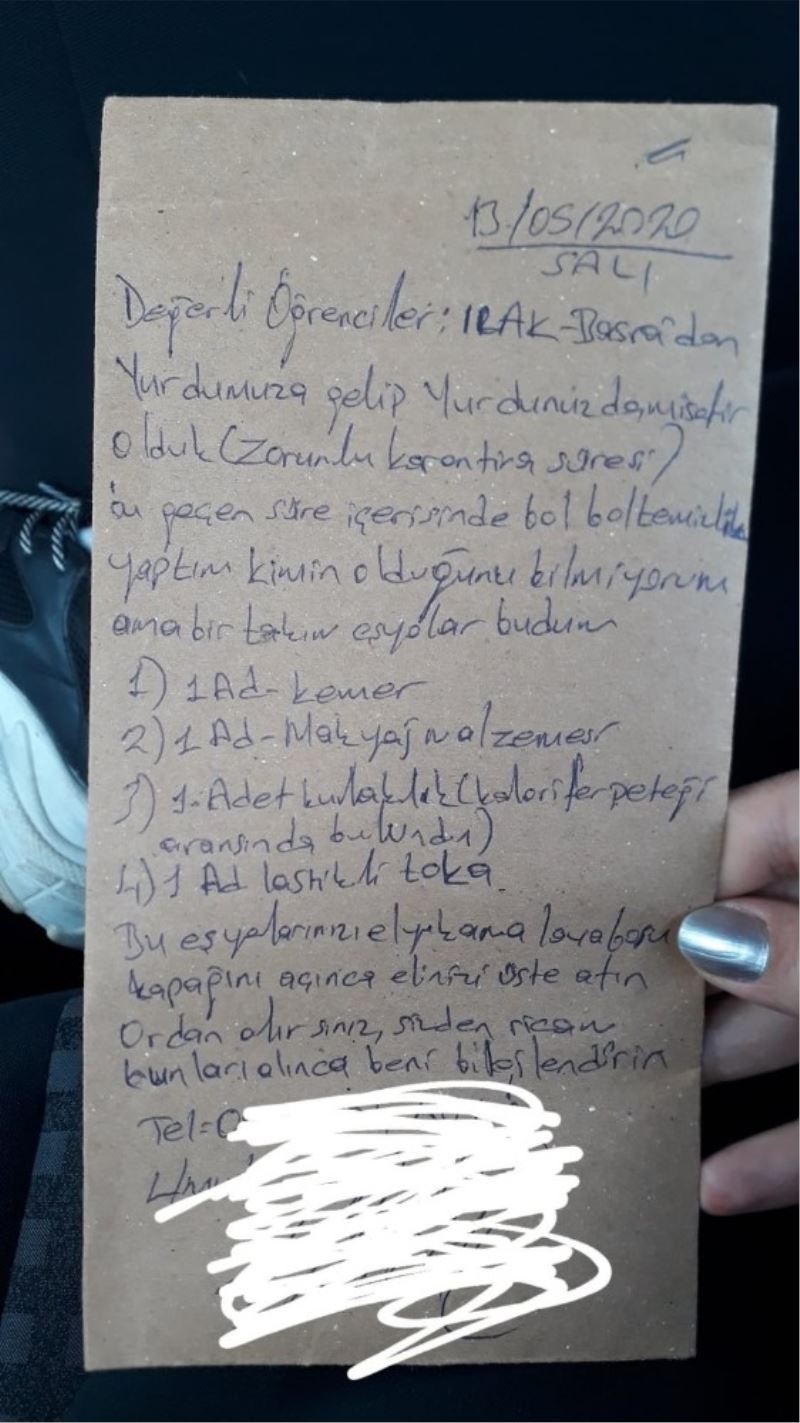 13/05/2020
SALI
Değerli Öğrenciler: IRAK-Basra'dan
Yurdumuza gelip Yurdunuzda misafir
olduk (Zorunlu karantina süresi)
bu geçen süre içerisinde bol bol temizlik
yaptım kimin olduğunu bilmiyorum
ama bir takım eşyalar budum
1) 1 Ad- kemer
2) 1 Ad- Makyaj malzemesi
3) 1-Adet kulaklık (kalorifer peteği
arasında bulundu)
4) 1 Ad lastikli toka.
Bu eşyalarınızı el yıkama lavabosu
kapağını açınca elinizi üste atın
Ordan alırsınız, sizden ricam
bunları alınca beni bilgilendirin
Tel=0